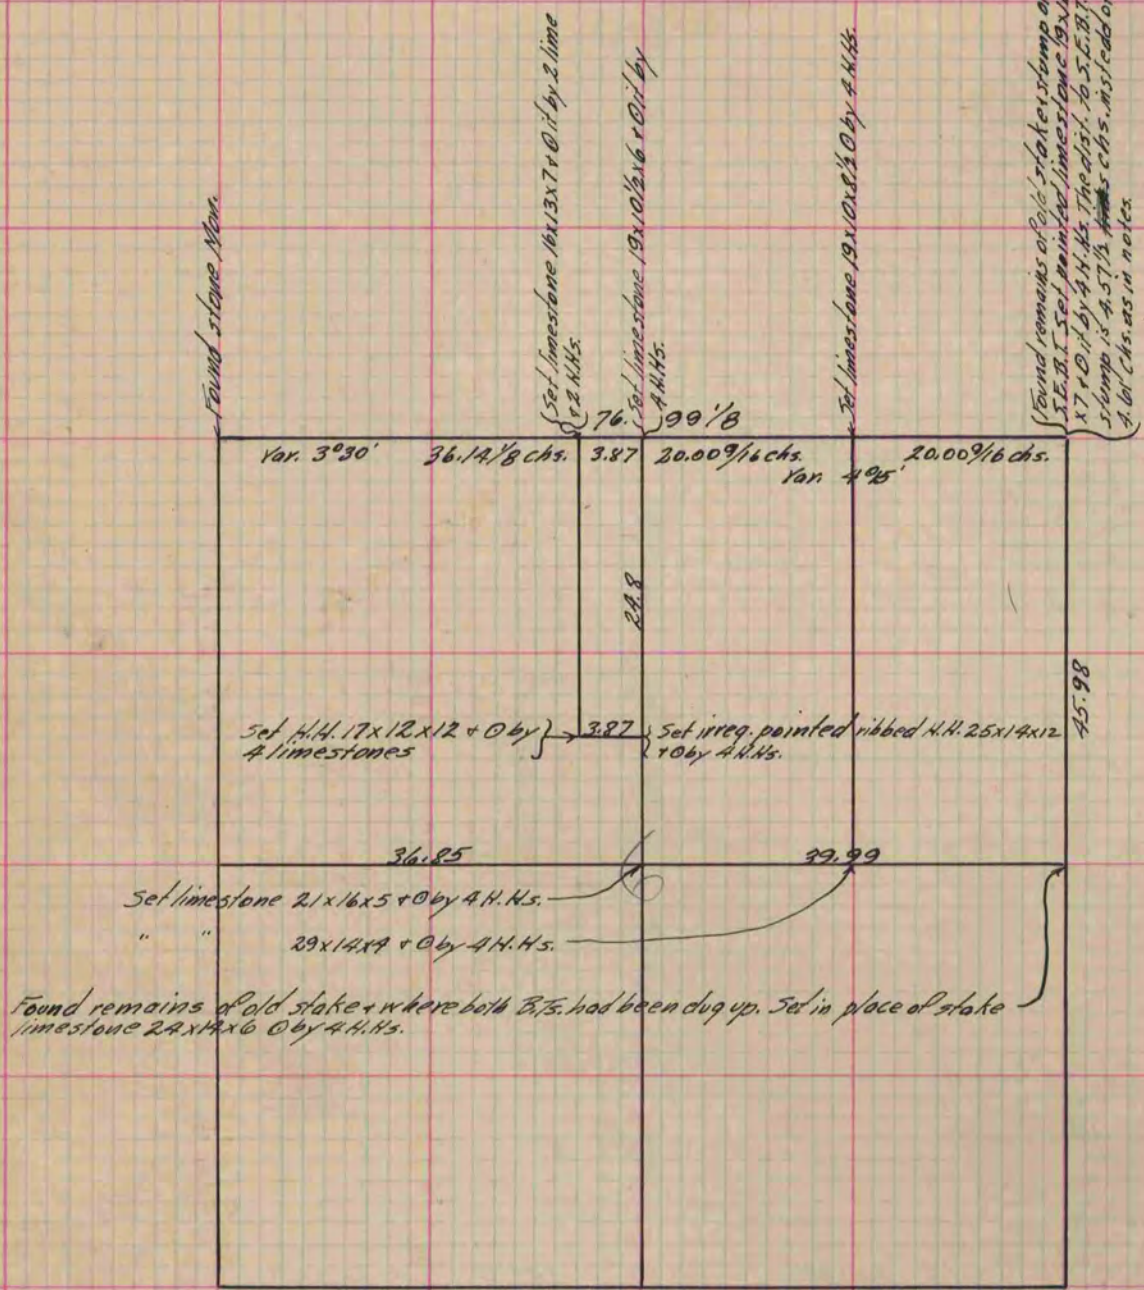 Found stone Mon.
Set limestone 16x13x7 + ⊙ it by 2 lime
+ 2 H.Hs.
Set limestone 19x10½x6 + ⊙ it by
4 H.Hs.
Set limestone 19x10x8½ ⊙ by 4 H.Hs.
Found remains of old stake + stump o
S.E.B.T. Set pointed limestone 19x1
x7 + ⊙ it by 4 H.Hs. The dist. to S.E.B.T.
stump is 4.57½ chs. instedd o
4.61 chs. as in notes.
76. 99 1/8
Var. 3°30' 36.14 1/8 chs. 3.87 20.00 9/16 chs. 20.00 9/16 chs.
Var. 4°15'
24.8
45.98
Set H.H. 17x12x12 + ⊙ by
4 limestones
3.87
Set irreg. pointed ribbed H.H. 25x14x12
+ ⊙ by 4 H.Hs.
36.85 39.99
6
Set limestone 21x16x5 + ⊙ by 4 H.Hs.
" " 29x14x4 + ⊙ by 4 H.Hs.
Found remains of old stake + where both B.Ts. had been dug up. Set in place of stake
limestone 24x14x6 ⊙ by 4 H.Hs.